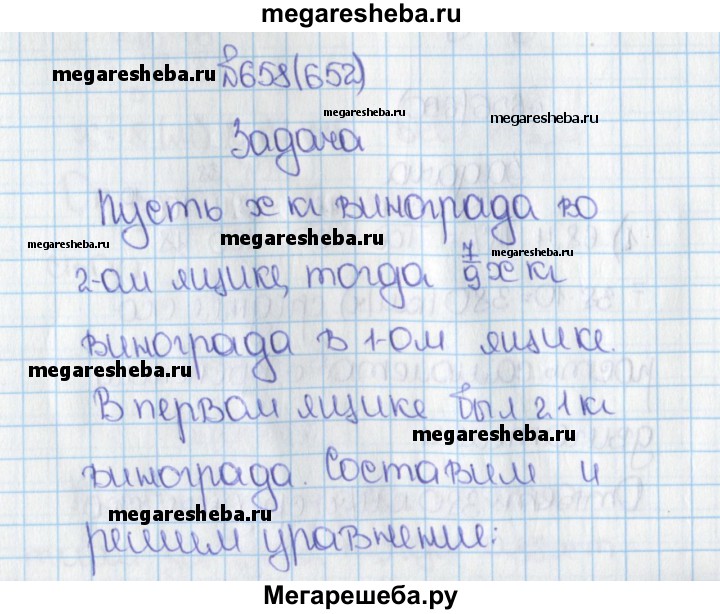 megaresheba.ru
megaresheba.ru №658(652)
megaresheba.ru
megaresheba.ru
Задача
Пусть x кг винограда во
megaresheba.ru
megaresheba.ru
2-ом ящике, тогда 7/9 x кг
винограда в 1-ом ящике.
megaresheba.ru
В первом ящике был 21 кг
megaresheba.ru
винограда. Составим и
megaresheba.ru
решим уравнение:
Мегарешеба.ру